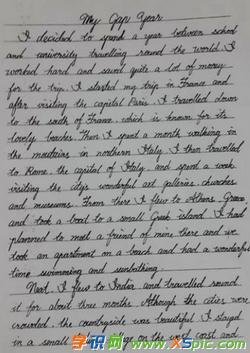 My Gap Year
I decided to spend a year between school
and university travelling round the world. I
worked hard and saved quite a lot of money
for the trip. I started my trip in France and
after visiting the capital Paris. I travelled down
to the south of France, which is known for its
lovely beaches. Then I spent a month walking in
the mountains in northern Italy. I then travelled
to Rome, the capital of Italy and spend a week
visiting the city's wonderful art galleries, churches
and museums. From there I flew to Athens, Greece
and took a boat to a small Greek island. I had
planned to meet a friend of mine there and we
took an apartment on a beach and had a wonderful
time swimming and sunbathing.
Next, I flew to India and travelled round
it for about three months. Although the cities were
crowded, the countryside was beautiful. I stayed
in a small village on the west coast and
学识网 www.xspic.com